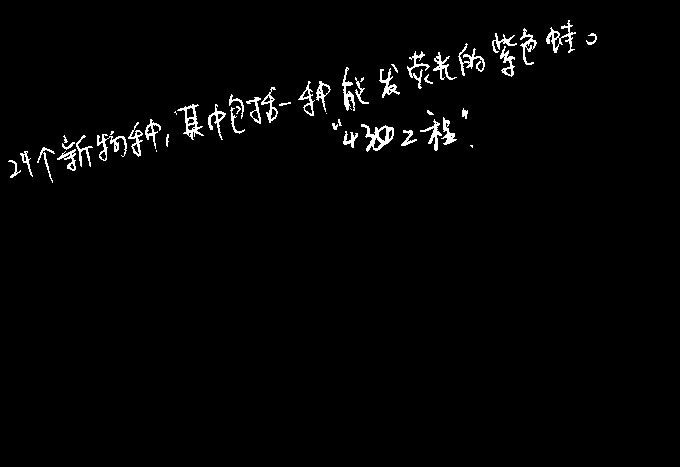 24个新物种,其中包括一种能发荧光的紫色蛙。
"430工程".